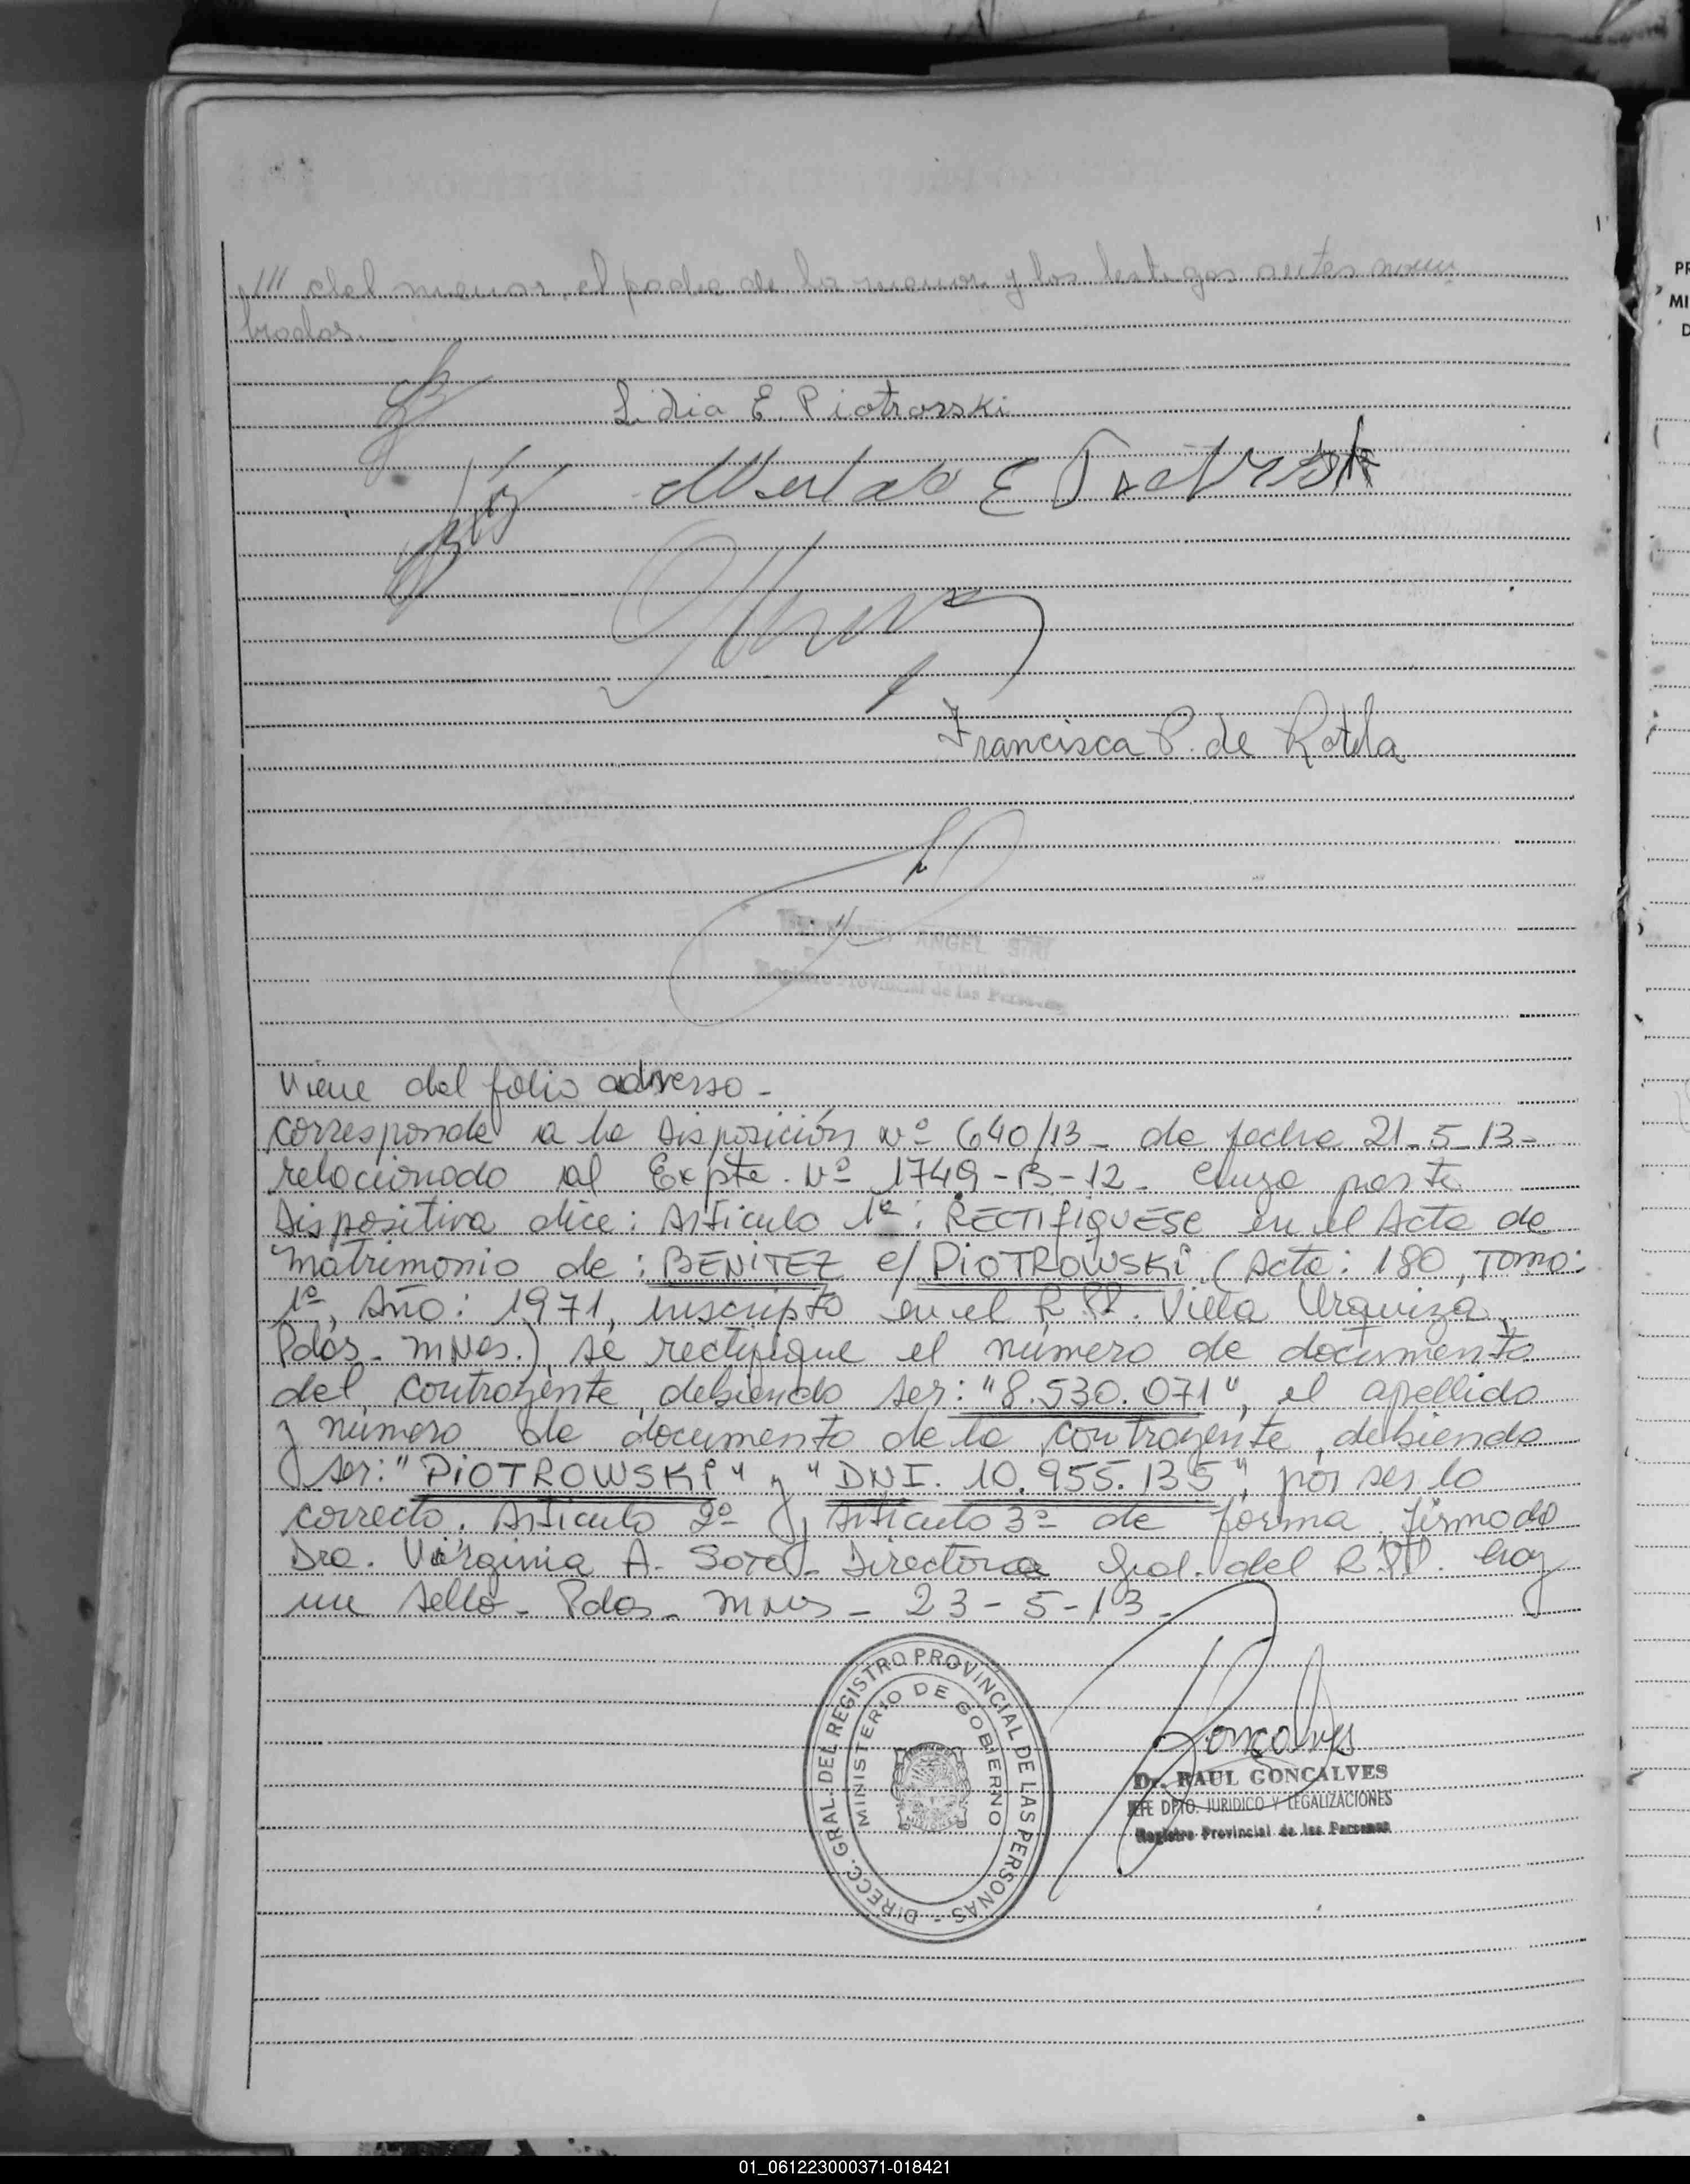 /// del menor, el padre de la menor y los testigos antes nom
brados.
Lidia E. Piotrorski
Francisca P. de Rotela
ANGEL
Registro Provincial de las Personas
Viene del folio adverso -
Corresponde a la Disposición Nº 640/13 - de fecha 21-5-13 -
relacionado al Expte. Nº 1749-B-12 - Cuya parte
Dispositiva dice: Artículo 1º: RECTIFIQUESE en el Acta de
Matrimonio de: BENITEZ c/ PIOTROWSKI (Acta: 180, Tomo:
1º, Año: 1971, inscripto en el R.P.P. Villa Urquiza,
Pdas - Mnes.), se rectifique el número de documento
del contrayente, debiendo ser: "8.530.071", el apellido
y número de documento de la contrayente, debiendo
ser: "PIOTROWSKI" y "DNI. 10.955.135", por ser lo
correcto. Artículo 2º y Artículo 3º de forma, firmado
Dra. Virginia A. Soto - Directora Gral. del R.P.P. hay
un sello - Pdas - Mnes - 23-5-13 -
DIRECC. GRAL. DEL REGISTRO PROVINCIAL DE LAS PERSONAS -
MINISTERIO DE GOBIERNO
Goncalves
Dr. RAUL GONCALVES
JEFE DPTO. JURIDICO Y LEGALIZACIONES
Registro Provincial de las Personas
PR
MI
D
01_061223000371-018421